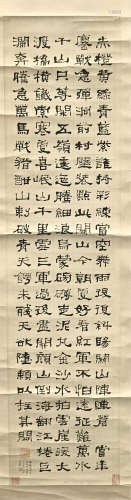 赤橙黃綠青藍紫誰持彩練當空舞雨後復斜陽關山陣陣蒼當年
鏖戰急彈洞前村壁裝點此關山今朝更好看紅軍不怕遠征難萬水
千山只等閑五嶺逶迤騰細浪烏蒙磅礴走泥丸金沙水拍雲崖暖大
渡橋橫鐵索寒更喜岷山千里雪三軍過後盡開顏山倒海翻江捲巨
瀾奔騰急萬馬戰猶酣山刺破青天鍔未殘天欲墮賴以拄其間